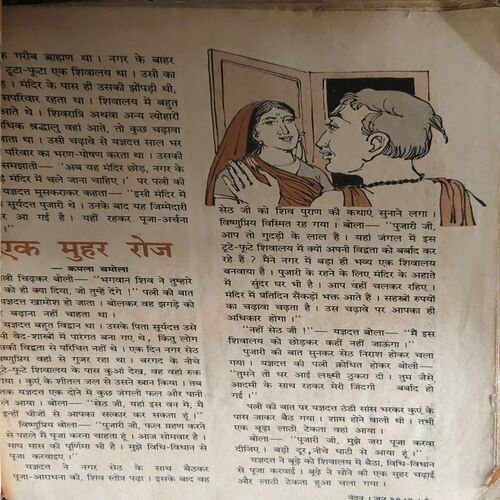 क गरीब ब्राह्मण था। नगर के बाहर
टूटा-फूटा एक शिवालय था। उसी का
है। मंदिर के पास ही उसकी झोंपड़ी थी,
सपरिवार रहता था। शिवालय में बहुत
आते थे। शिवरात्रि अथवा अन्य त्योहारों
धिक श्रद्धालु वहां आते, तो कुछ चढ़ावा
ाता था। उसी चढ़ावे से यज्ञदत्त साल भर
परिवार का भरण-पोषण करता था। उसकी
समझाती— "अब यह मंदिर छोड़, नगर के
ड़े मंदिर में चले जाना चाहिए।' पर पत्नी की
यज्ञदत्त मुसकराकर कहता— "इसी मंदिर में
सूर्यदत्त पुजारी थे। उनके बाद यह जिम्मेदारी
र आ गई है। यहीं रहकर पूजा-अर्चना
।"
एक मुहर रोज
— कमला चमोला
त्नी चिढ़कर बोली— "भगवान शिव ने तुम्हारे
को ही क्या दिया, जो तुम्हें देंगे।" पत्नी की बात
यज्ञदत्त खामोश हो जाता। बोलकर वह झगड़े को
बढ़ाना नहीं चाहता था।
यज्ञदत्त बहुत विद्वान था। उसके पिता सूर्यदत्त उसे
भी वेद-शास्त्रों में पारंगत बना गए थे, किंतु लोग
की विद्वता से परिचित नहीं थे। एक दिन नगर सेठ
विष्णुप्रिय वहां से गुजर रहा था। बरगद के नीचे
टूटे-फूटे शिवालय के पास कुआं देख, वह वहां रुक
गया। कुएं के शीतल जल से उसने स्नान किया। तब
तक यज्ञदत्त एक दोने में कुछ जंगली फल और पानी
ले आया। बोला— "सेठ जी, यहां इस वन में, मैं
इन्हीं चीजों से आपका सत्कार कर सकता हूं।"
विष्णुप्रिय बोला— "पुजारी जी, फल ग्रहण करने
से पहले मैं पूजा करना चाहता हूं। आज सोमवार है।
माघ मास की पूर्णिमा भी है। मुझे विधि-विधान से
पूजा करवाइए।"
यज्ञदत्त ने नगर सेठ के साथ बैठकर
पूजा-आराधना की, शिव स्तोत्र पढ़ा। इसके बाद वह
सेठ जी को शिव पुराण की कथाएं सुनाने लगा।
विष्णुप्रिय विस्मित रह गया। बोला— "पुजारी जी,
आप तो गुदड़ी के लाल हैं। यहां जंगल में इस
टूटे-फूटे शिवालय में क्यों अपनी विद्वता को बर्बाद कर
रहे हैं? मैंने नगर में बड़ा ही भव्य एक शिवालय
बनवाया है। पुजारी के रहने के लिए मंदिर के अहाते
में सुंदर घर भी है। आप वहीं चलकर रहिए।
मंदिर में प्रतिदिन सैंकड़ों भक्त आते हैं। सहस्त्रों रुपयों
का चढ़ावा चढ़ता है। उस चढ़ावे पर आपका ही
अधिकार होगा।"
"नहीं सेठ जी!"— यज्ञदत्त बोला— "मैं इस
शिवालय को छोड़कर कहीं नहीं जाऊंगा।"
पुजारी की बात सुनकर सेठ निराश होकर चला
गया। यज्ञदत्त की पत्नी क्रोधित होकर बोली—
"तुमने तो घर आई लक्ष्मी ठुकरा दी। तुम जैसे
आदमी के साथ रहकर मेरी जिंदगी बर्बाद हो
गई।"
पत्नी की बात पर यज्ञदत्त ठंडी सांस भरकर कुएं के
पास जाकर बैठ गया। शाम होने वाली थी। तभी
एक बूढ़ा लाठी टेकता वहां आया।
बोला— "पुजारी जी, मुझे जरा पूजा करवा
दीजिए। बड़ी दूर, नीचे घाटी से आया हूं।"
यज्ञदत्त ने बूढ़े को शिवालय में बैठा, विधि-विधान
से पूजा करवाई। बूढ़े ने सोने की एक मुहर चढ़ाई
और लाठी टेकता हुआ चला गया।
नंदन। जून